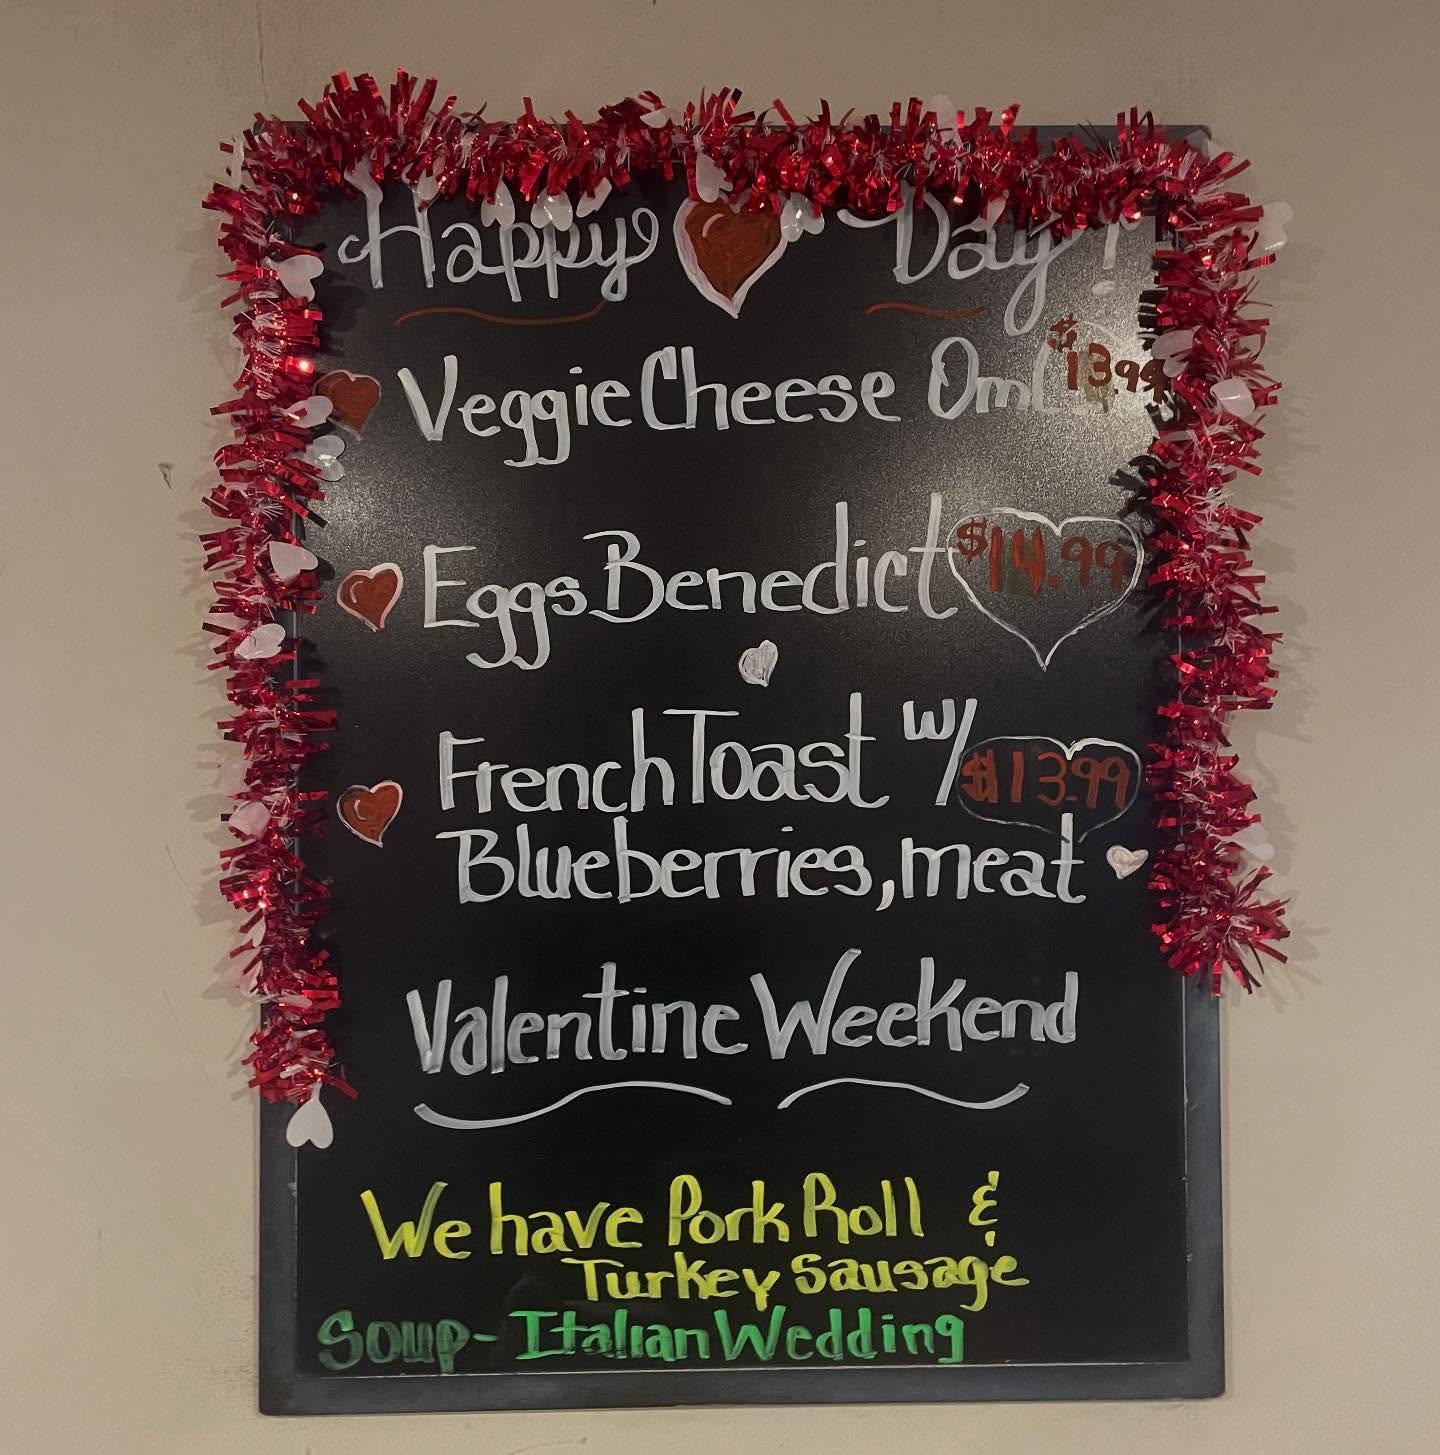 Happy Day!
Veggie Cheese Oml $13.99
Eggs Benedict $14.99
French Toast w/ $13.99
Blueberries, meat
Valentine Weekend
We have Pork Roll &
Turkey Sausage
Soup - Italian Wedding